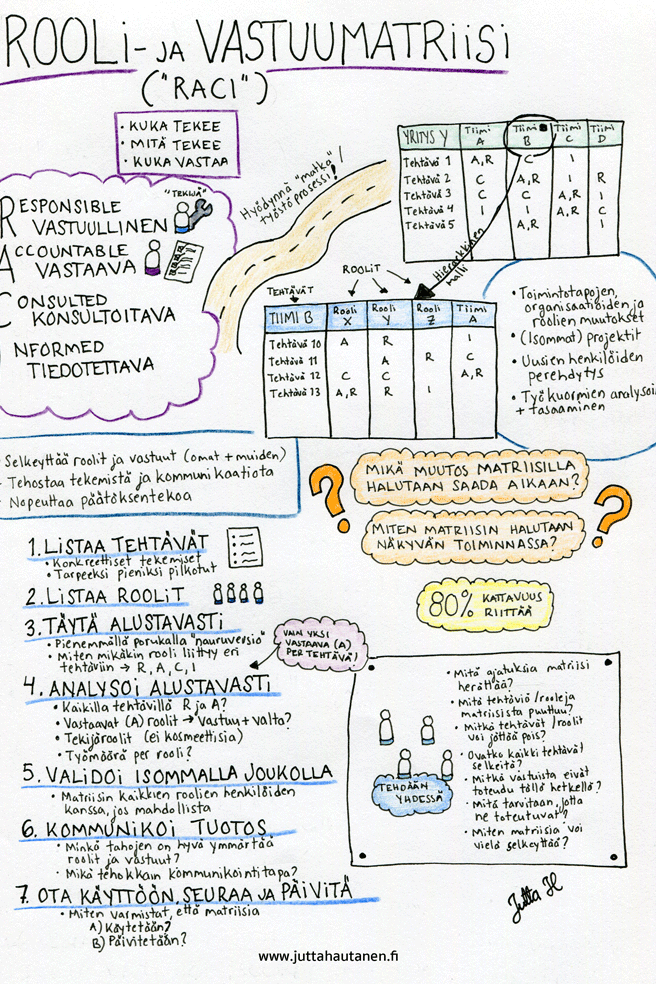 ROOLI- JA VASTUUMATRIISI
("RACI")
• KUKA TEKEE
• MITÄ TEKEE
• KUKA VASTAA
RESPONSIBLE
VASTUULLINEN
"TEKIJÄ"
ACCOUNTABLE
VASTAAVA
CONSULTED
KONSULTOITAVA
INFORMED
TIEDOTETTAVA
Hyödynnä "matka"/
työstöprosessi!
YRITYS Y Tiimi A Tiimi B Tiimi C Tiimi D
Tehtävä 1 A,R C I
Tehtävä 2 C A,R I R
Tehtävä 3 C C A,R I
Tehtävä 4 I I A,R C
Tehtävä 5 A,R I
Hierarkkinen
malli
TEHTÄVÄT
ROOLIT
TIIMI B Rooli X Rooli Y Rooli Z Tiimi A
Tehtävä 10 A R I
Tehtävä 11 A R C
Tehtävä 12 C C A,R
Tehtävä 13 A,R R I
• Toimintatapojen,
organisaatioiden ja
roolien muutokset
• (Isommat) projektit
• Uusien henkilöiden
perehdytys
• Työkuormien analysoi
+ tasaaminen
- Selkeyttää roolit ja vastuut (omat + muiden)
- Tehostaa tekemistä ja kommunikaatiota
- Nopeuttaa päätöksentekoa
? MIKÄ MUUTOS MATRIISILLA
HALUTAAN SAADA AIKAAN?
MITEN MATRIISIN HALUTAAN
NÄKYVÄN TOIMINNASSA? ?
80% KATTAVUUS
RIITTÄÄ
1. LISTAA TEHTÄVÄT
• Konkreettiset tekemiset
• Tarpeeksi pieniksi pilkotut
2. LISTAA ROOLIT
3. TÄYTÄ ALUSTAVASTI
• Pienemmällä porukalla "nauruversio"
• Miten mikäkin rooli liittyy eri
tehtäviin → R, A, C, I
VAIN YKSI
VASTAAVA (A)
PER TEHTÄVÄ!
4. ANALYSOI ALUSTAVASTI
• Kaikilla tehtävillä R ja A?
• Vastaavat (A) roolit → Vastuu + valta?
• Tekijäroolit (ei kosmeettisia)
• Työmäärä per rooli?
5. VALIDOI ISOMMALLA JOUKOLLA
• Matriisin kaikkien roolien henkilöiden
kanssa, jos mahdollista
6. KOMMUNIKOI TUOTOS
• Minkä tahojen on hyvä ymmärtää
roolit ja vastuut?
• Mikä tehokkain kommunikointitapa?
7. OTA KÄYTTÖÖN, SEURAA JA PÄIVITÄ
• Miten varmistat, että matriisia
A) Käytetään?
B) Päivitetään?
TEHDÄÄN
YHDESSÄ
• Mitä ajatuksia matriisi
herättää?
• Mitä tehtäviä/rooleja
matriisista puuttuu?
• Mitkä tehtävät/roolit
voi jättää pois?
• Ovatko kaikki tehtävät
selkeitä?
• Mitkä vastuista eivät
toteudu tällä hetkellä?
• Mitä tarvitaan, jotta
ne toteutuvat?
• Miten matriisia voi
vielä selkeyttää?
Jutta H
www.juttahautanen.fi